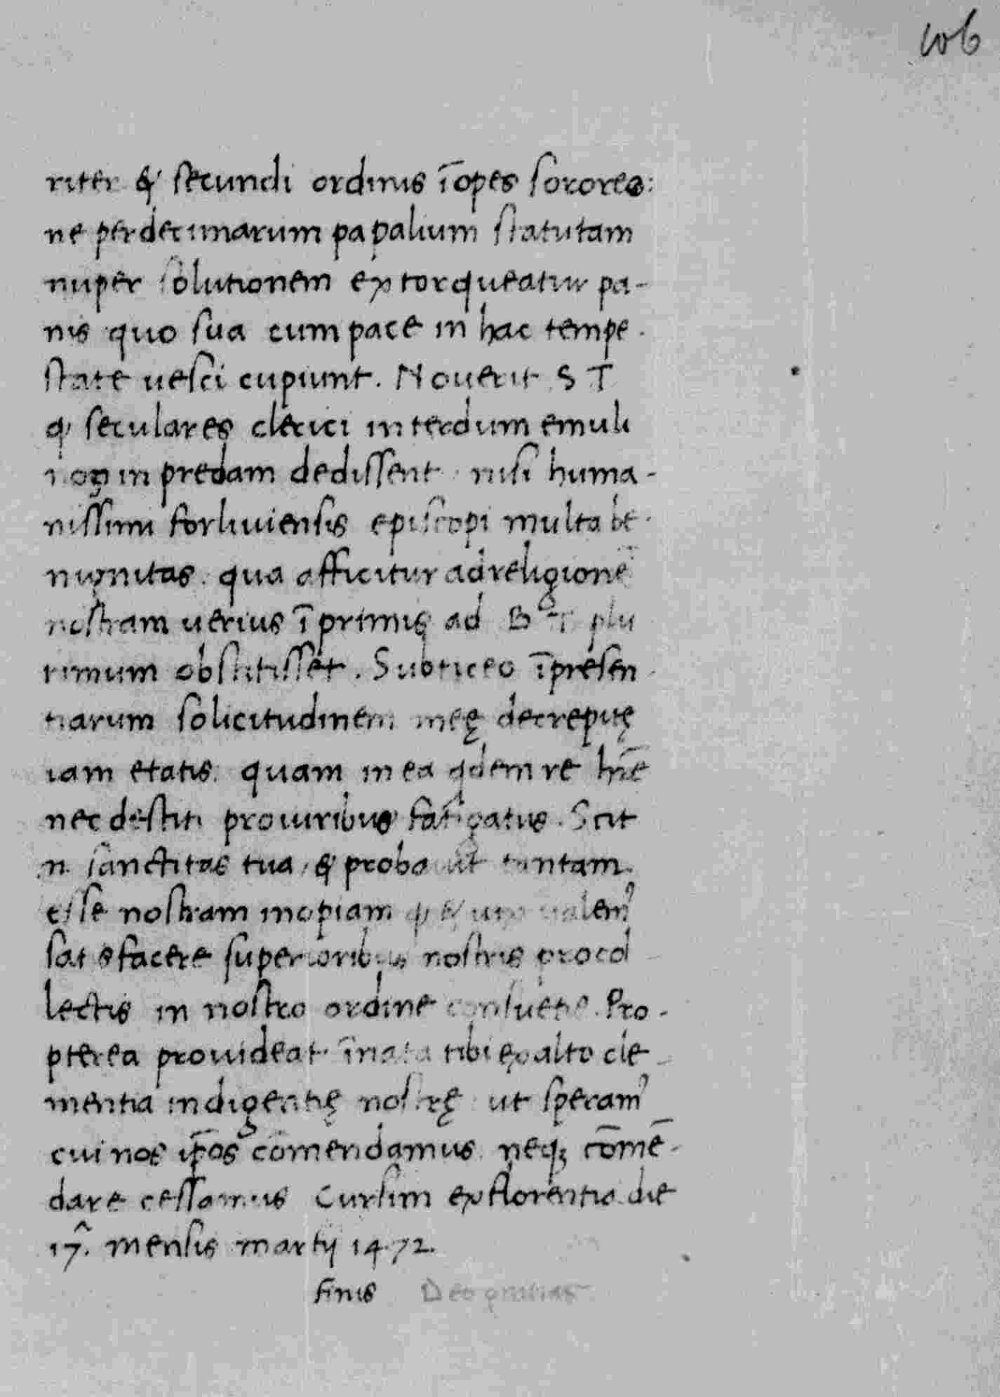 106
riter & secundi ordinis īopes sorores:
ne per decimarum papalium statutam
nuper solutionem extorqueatur pa-
nis quo sua cum pace in hac tempe-
state uesci cupiunt. Nouerit S T
seculares clerici interdum emuli
in predam dedissent nisi huma-
nissimi forliuiensis episcopi multa be-
nignitas. qua afficitur ad religionē
nostram uerius ī primis ad B T plu
rimum obstitisset. Subticeo īpresen-
tiarum solicitudinem meę decrepitę
iam etatis. quam in ea qdem re
nec destiti pro uiribus fatigatus. Scit
n. sanctitas tua & proba ut tantam
esse nostram inopiam
satisfacere superioribus nostris pro col
lectis in nostro ordine consuetis. Pro-
pterea prouideat īnata tibi ex alto cle-
mentia indigentię nostrę ut speram᾿
cui nos ip̄os cōmendamus neq; cōmē-
dare cessamus Cursim ex florentia die
17. mensis martij 1472.
finis Deo gratias